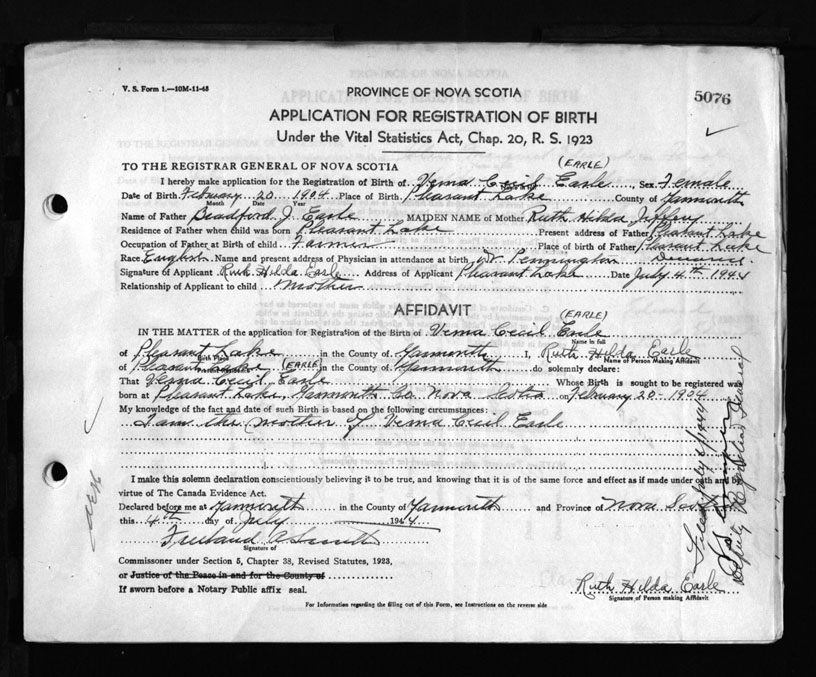 V. S. Form 1.—10M-11-43
5076
PROVINCE OF NOVA SCOTIA
APPLICATION FOR REGISTRATION OF BIRTH
Under the Vital Statistics Act, Chap. 20, R. S. 1923
TO THE REGISTRAR GENERAL OF NOVA SCOTIA
(EARLE)
I hereby make application for the Registration of Birth of Verna Cecil Earle Sex Female
Date of Birth February 20 1904 Place of Birth Pleasant Lake County of Yarmouth
Month Date Year
Name of Father Bradford J. Earle MAIDEN NAME of Mother Ruth Hilda Jeffery
Residence of Father when child was born Pleasant Lake Present address of Father Pleasant Lake
Occupation of Father at Birth of child Farmer Place of birth of Father Pleasant Lake
Race English Name and present address of Physician in attendance at birth Dr. Pennington Deceased
Signature of Applicant Ruth Hilda Earle Address of Applicant Pleasant Lake Date July 4th 1944
Relationship of Applicant to child Mother
AFFIDAVIT
(EARLE)
IN THE MATTER of the application for Registration of the Birth of Verna Cecil Earle
Name in full
of Pleasant Lake in the County of Yarmouth I, Ruth Hilda Earle
Birth Place Name of Person Making Affidavit
of Pleasant Lake in the County of Yarmouth do solemnly declare:
(EARLE)
That Verna Cecil Earle Whose Birth is sought to be registered was
born at Pleasant Lake, Yarmouth Co. Nova Scotia on February 20 - 1904
My knowledge of the fact and date of such Birth is based on the following circumstances:
I am the mother of Verna Cecil Earle
I make this solemn declaration conscientiously believing it to be true, and knowing that it is of the same force and effect as if made under oath and by
virtue of The Canada Evidence Act.
Declared before me at Yarmouth in the County of Yarmouth and Province of Nova Scotia
this 4th day of July 1944
Signature of
Commissioner under Section 5, Chapter 38, Revised Statutes, 1923,
or Justice of the Peace in and for the County of
If sworn before a Notary Public affix seal.
Ruth Hilda Earle
Signature of Person making Affidavit
For Information regarding the filling out of this Form, see Instructions on the reverse side
Deputy Registrar General